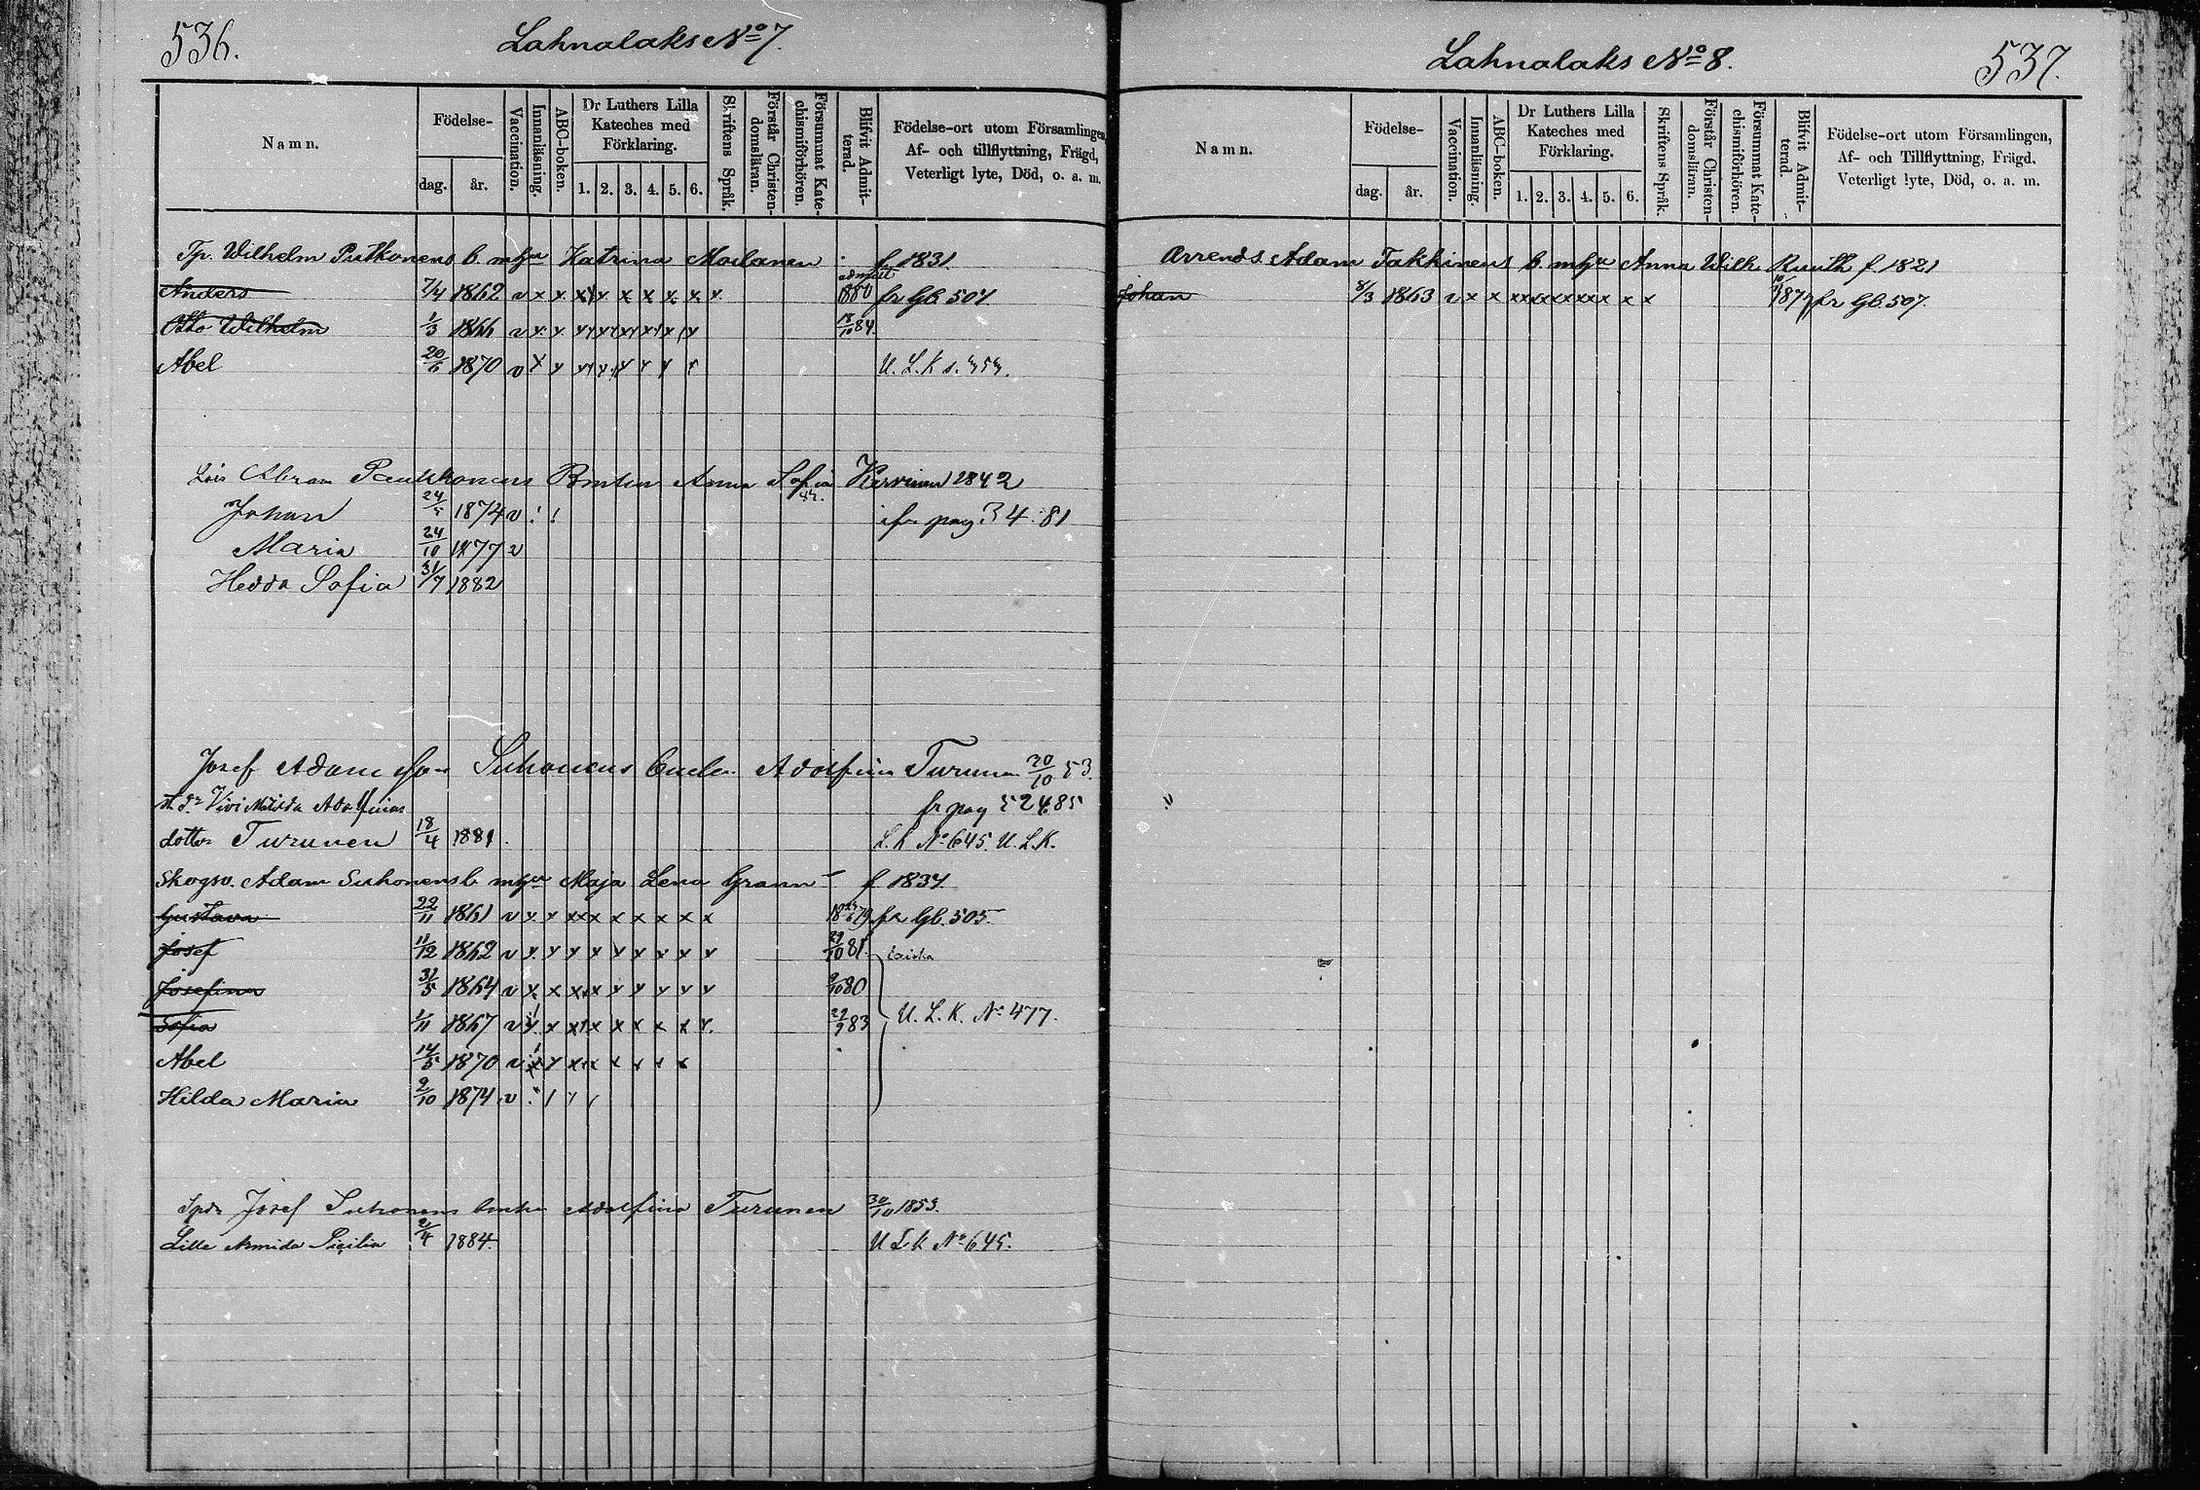 536.
Lahnalaks No 7.
Namn.
Födelse-
dag.
år.
Vaccination.
Innanläsning.
ABC-boken.
Dr Luthers Lilla
Kateches med
Förklaring.
1. 2. 3. 4. 5. 6.
Skriftens Språk.
Förstår Christen-
domsläran.
Försummat Kate-
chismiförhören.
Blifvit Admit-
terad.
Födelse-ort utom Församlingen,
Af- och tillflyttning, Frägd,
Veterligt lyte, Död, o. a. m.
Tp. Wilhelm b. mhju Katrina Moilanen f. 1831.
Anders 7/4 1862 v x x x x x x x x x. admitt 1880 fr Gb. 507
Otto Wilhelm 1/3 1866 v x x x x x x x x 18/10 84.
Abel 20/6 1870 v x x x x x x x x U. L. K s. 353.
Abram Anna Sofia 1842
Johan 24/5 1874 v ! ! fr pag 34 81
Maria 24/10 1877 v
Hedda Sofia 31/7 1882
Josef Adam Suhonens Adolfina Turunen 20/10 53.
Vivi Matilda Adolfinas fr pag 524 85
dotter Turunen 18/4 1881. L. K No 645. U. L. K.
Skogsv. Adam Suhonens b. mhju Maja Lena Grann f 1837
Gustava 22/11 1861 v x x x x x x x x x x 1879 fr Gb. 505.
Josef 11/12 1862 v x x x x x x x x x 29/10 81.
Josefina 31/5 1864 v x x x x x x x x x 9/10 80
Sofia 1/11 1867 v x x x x x x x x x. 22/9 83 U. L. K. No 477.
Abel 14/5 1870 v x x x x x x x x x
Hilda Maria 2/10 1874 v
Josef Suhonens Adolfina Turunen 30/10 1853.
Lille Armida 2/4 1884. U L K No 645.
537.
Lahnalaks No 8.
Namn.
Födelse-
dag.
år.
Vaccination.
Innanläsning.
ABC-boken.
Dr Luthers Lilla
Kateches med
Förklaring.
1. 2. 3. 4. 5. 6.
Skriftens Språk.
Förstår Christen-
domsläran.
Försummat Kate-
chismiförhören.
Blifvit Admit-
terad.
Födelse-ort utom Församlingen,
Af- och Tillflyttning, Frägd.
Veterligt lyte, Död, o. a. m.
Arrends. Adam Takkinens b. mhju Anna Wilh. Ruuth f. 1821
Johan 8/3 1863 v x x x x x x x x x x x 1877 fr Gb. 507.